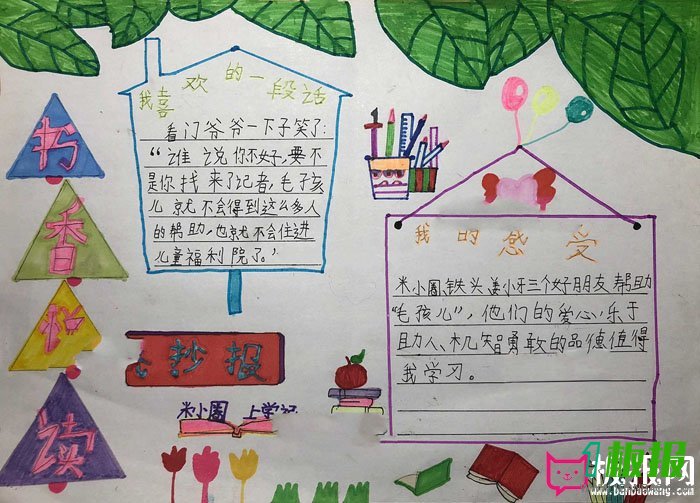 书
香
悦
读
我喜欢的一段话
看门爷爷一下子笑了：
“谁说你不好，要不
是你找来了记者，毛孩
儿就不会得到这么多人
的帮助，也就不会住进
儿童福利院了。”
抄报
米小圈上学记
我的感受
米小圈、铁头、姜小牙三个好朋友帮助
“毛孩儿”，他们的爱心、乐于
助人、机智勇敢的品德值得
我学习。
板报网
www.banbaowang.com